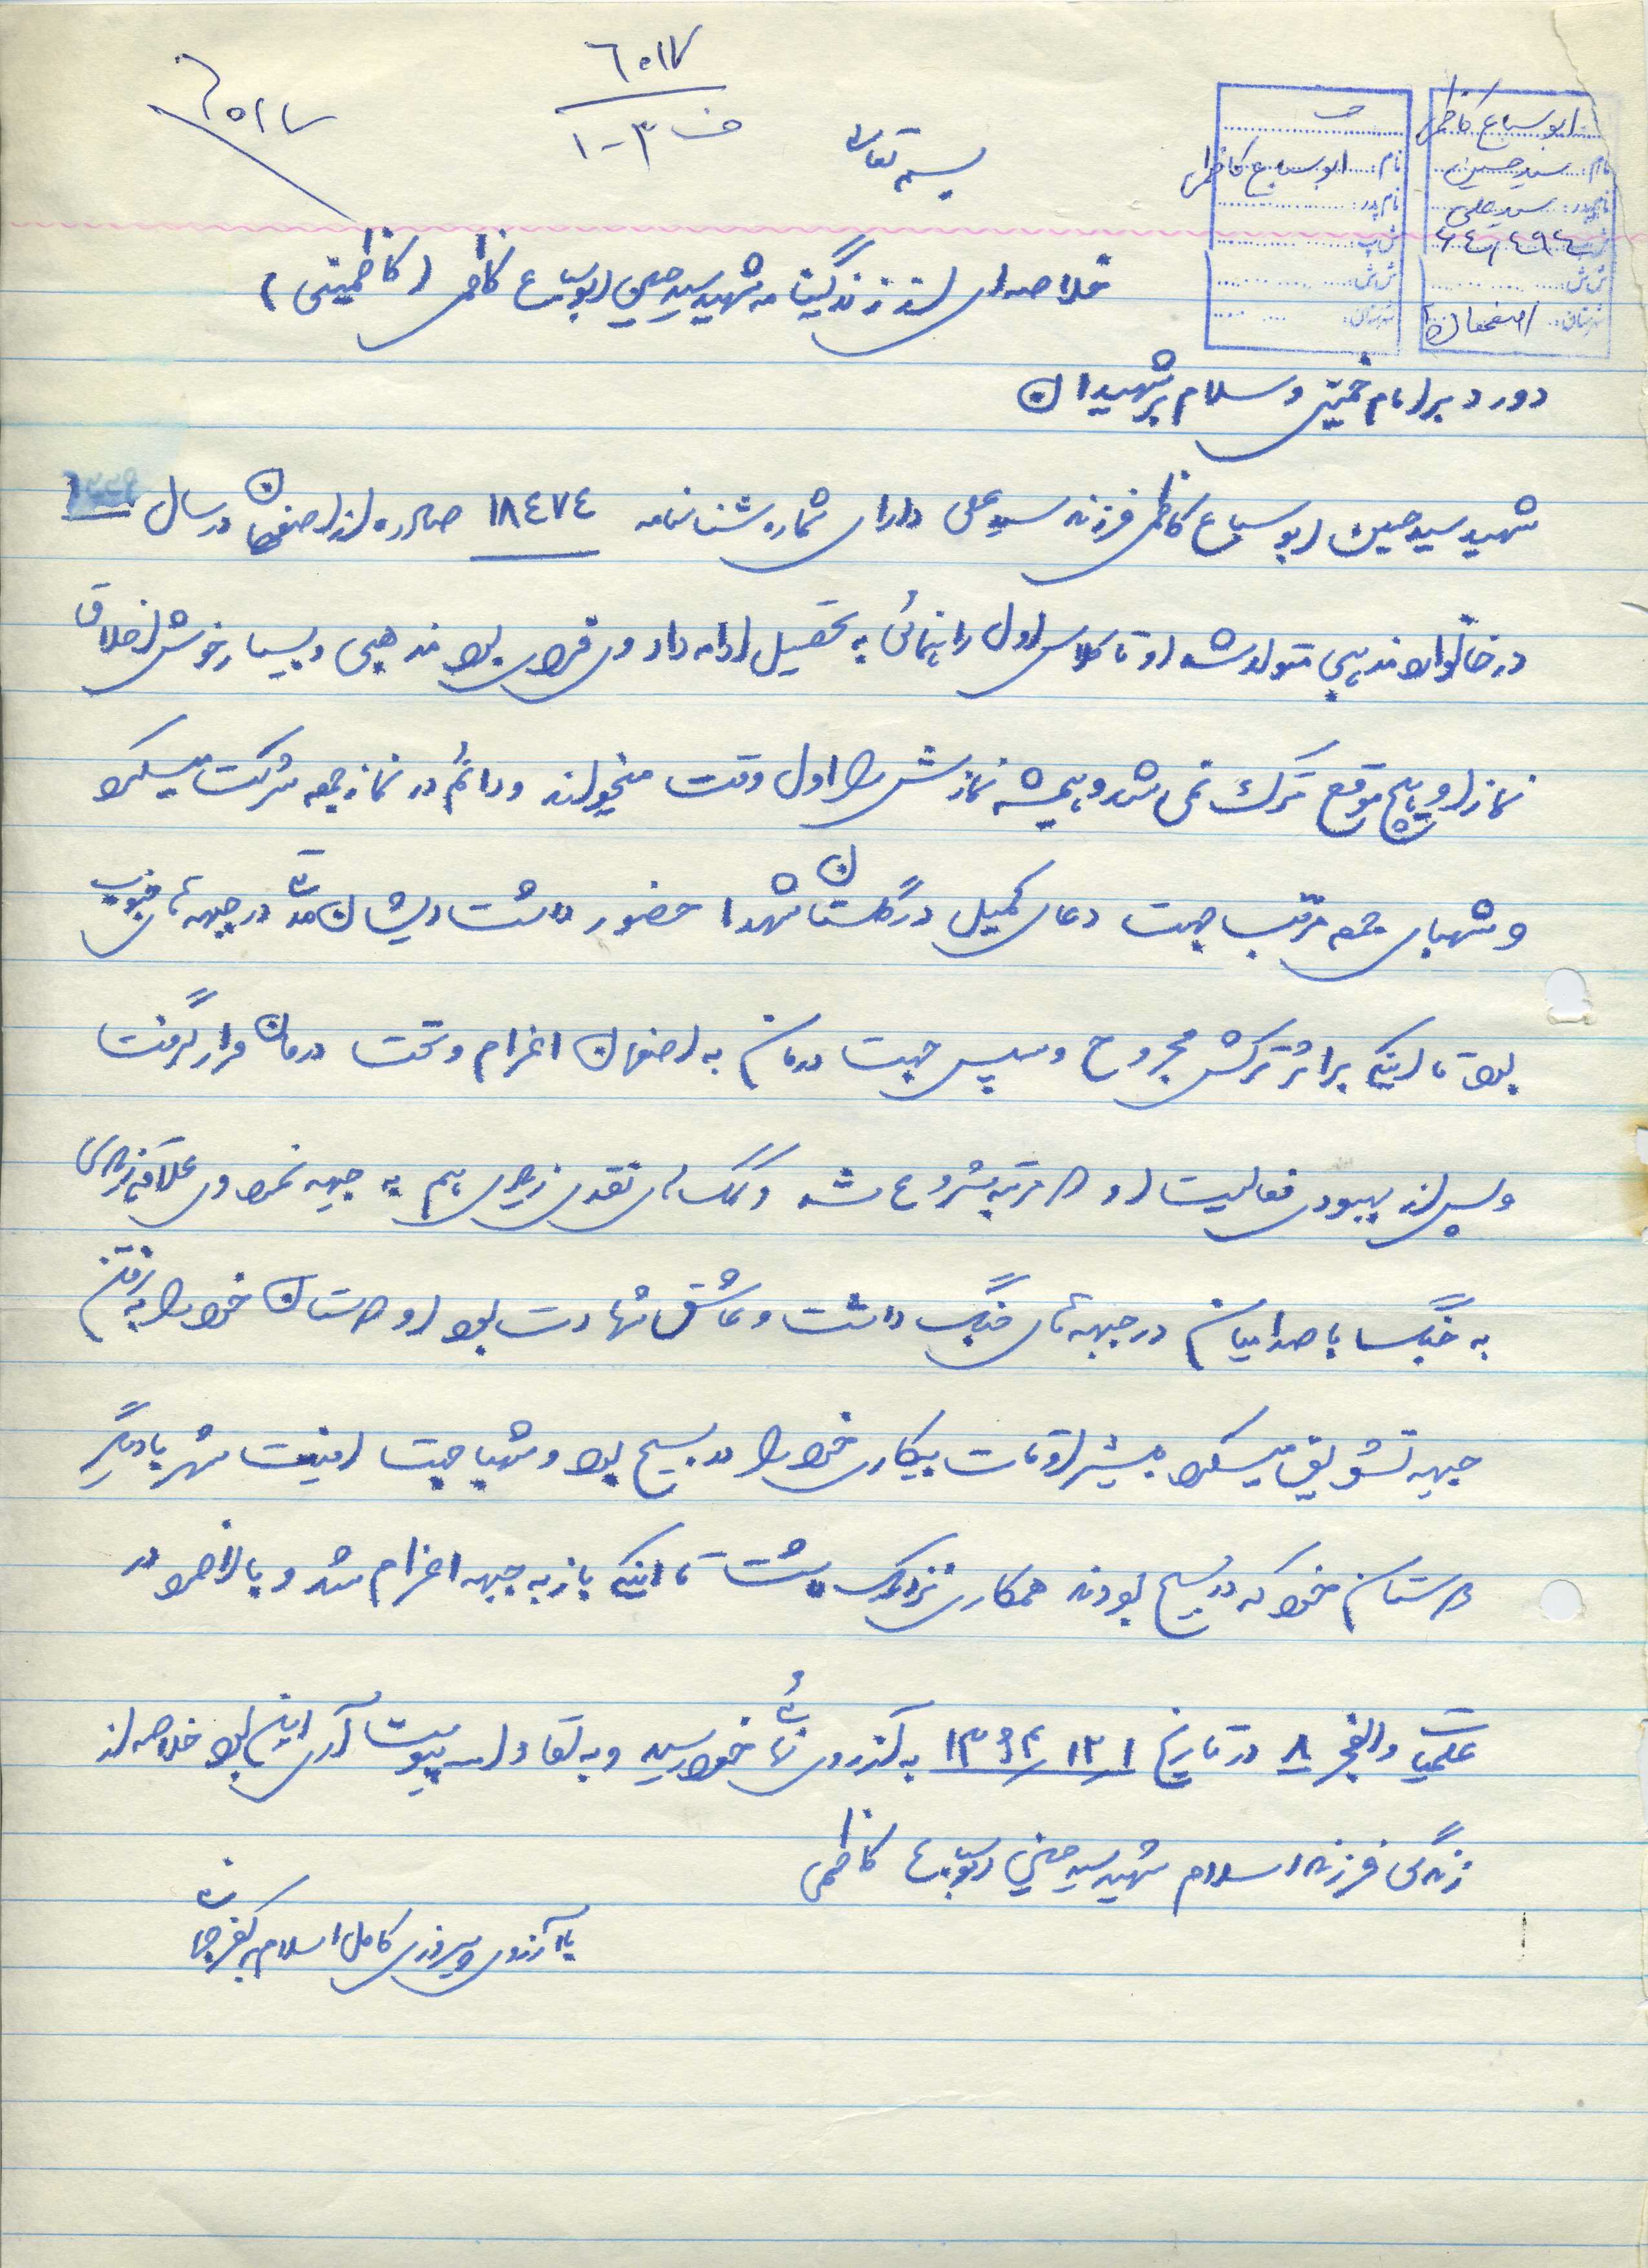 ٦٠١٧
٦٠١٧
ف ٣-١
بسمه تعالی
ابوسباع کاظمی
نام: سید حسین
نام پدر: سید علی
ش پ:
ش ش:
شهرستان: اصفهان
نام: ابوسباع کاظمی
نام پدر:
ش پ:
ش ش:
شهرستان:
خلاصه‌ای از زندگینامه شهید سید حسین ابوسباع کاظمی (کاظمینی)
درود بر امام خمینی و سلام بر شهیدان
شهید سید حسین ابوسباع کاظمی فرزند سید علی دارای شماره شناسنامه ١٨٤٧٤ صادره از اصفهان در سال
در خانواده مذهبی متولد شد او تا کلاس اول راهنمائی به تحصیل ادامه داد وی فردی بود مذهبی و بسیار خوش اخلاق
نماز او هیچ موقع ترک نمی شد و همیشه نمازش را اول وقت میخواند و دائم در نماز جمعه شرکت میکرد
و شبهای جمعه مرتب جهت دعای کمیل در گلستان شهدا حضور داشت ایشان مدتی در جبهه های جنوب
بود تا اینکه بر اثر ترکش مجروح و سپس جهت درمان به اصفهان اعزام و تحت درمان قرار گرفت
و پس از بهبودی فعالیت او دو مرتبه شروع شد و کمک های نقدی زیادی هم به جبهه نمود وی علاقه زیادی
به جنگ با صدامیان در جبهه های جنگ داشت و عاشق شهادت بود او دوستان خود را به رفتن
جبهه تشویق میکرد بیشتر اوقات بیکاری خود را در بسیج بود و شبها جهت امنیت شهر با دیگر
دوستان خود که در بسیج بودند همکاری نزدیک داشت تا اینکه باز به جبهه اعزام شد و بالاخره در
عملیات والفجر ٨ در تاریخ ١٣٦٤/١٢/١ به آرزوی نهائی خود رسید و به لقاء الله پیوست آری این بود خلاصه از
زندگی فرزند اسلام شهید سید حسین ابوسباع کاظمی
با آرزوی پیروزی کامل اسلام بر کفر جهانی